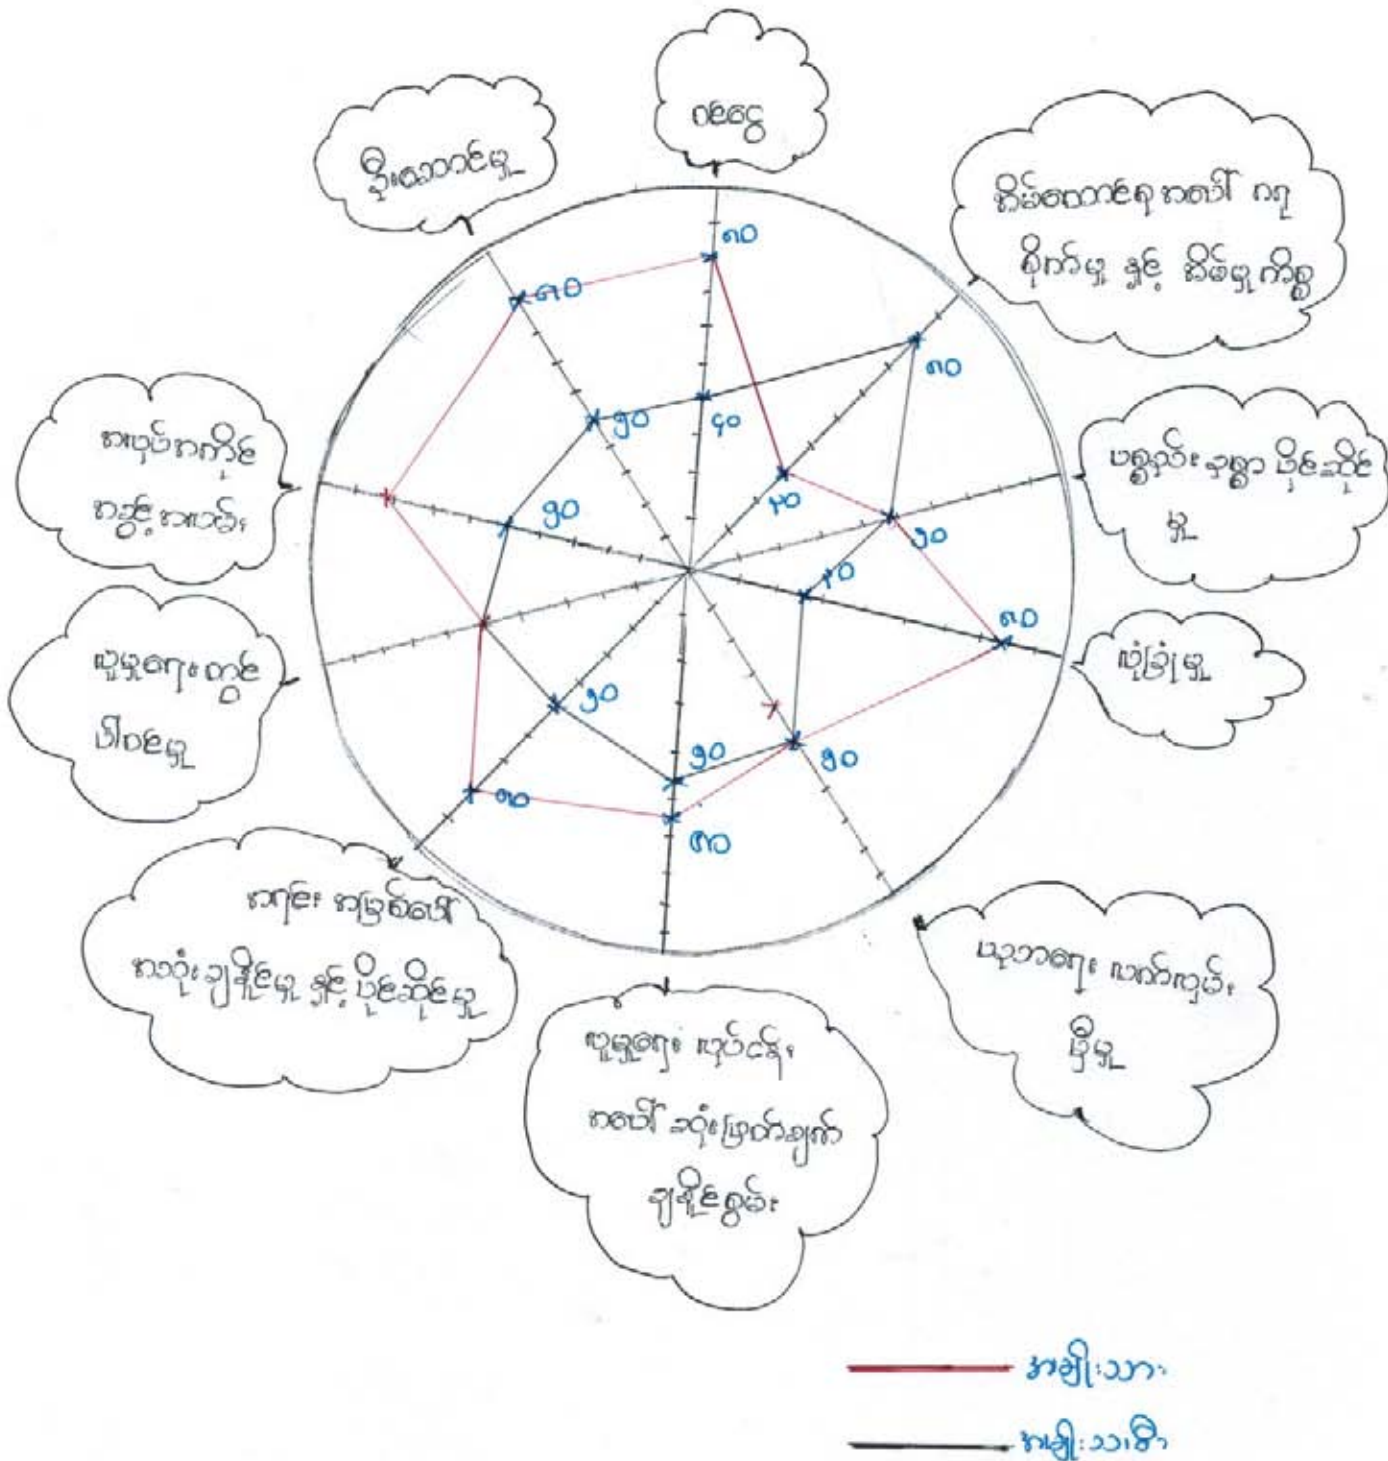 ဝင်ငွေ
အိမ်ထောင်စု အပေါ် ဂရု
စိုက်မှု နှင့် အိမ်မှုကိစ္စ
ပစ္စည်း ဥစ္စာ ပိုင်ဆိုင်
မှု
လုံခြုံမှု
ပညာရေး လက်လှမ်း
မှီမှု
လူမှုရေး လုပ်ငန်း
အပေါ် ဆုံးဖြတ်ချက်
ချနိုင်စွမ်း
အရင်း အမြစ်ပေါ်
အသုံးချနိုင်မှု နှင့် ပိုင်ဆိုင်မှု
လူမှုရေးတွင်
ပါဝင်မှု
အလုပ်အကိုင်
အခွင့်အလမ်း
ဦးဆောင်မှု
၈၀
၈၀
၈၀
၅၀
၄၀
၅၀
၄၀
၅၀
၃၀
၈၀
၅၀
၅၀
၅၀
၆၀
၈၀
အမျိုးသား
အမျိုးသမီး